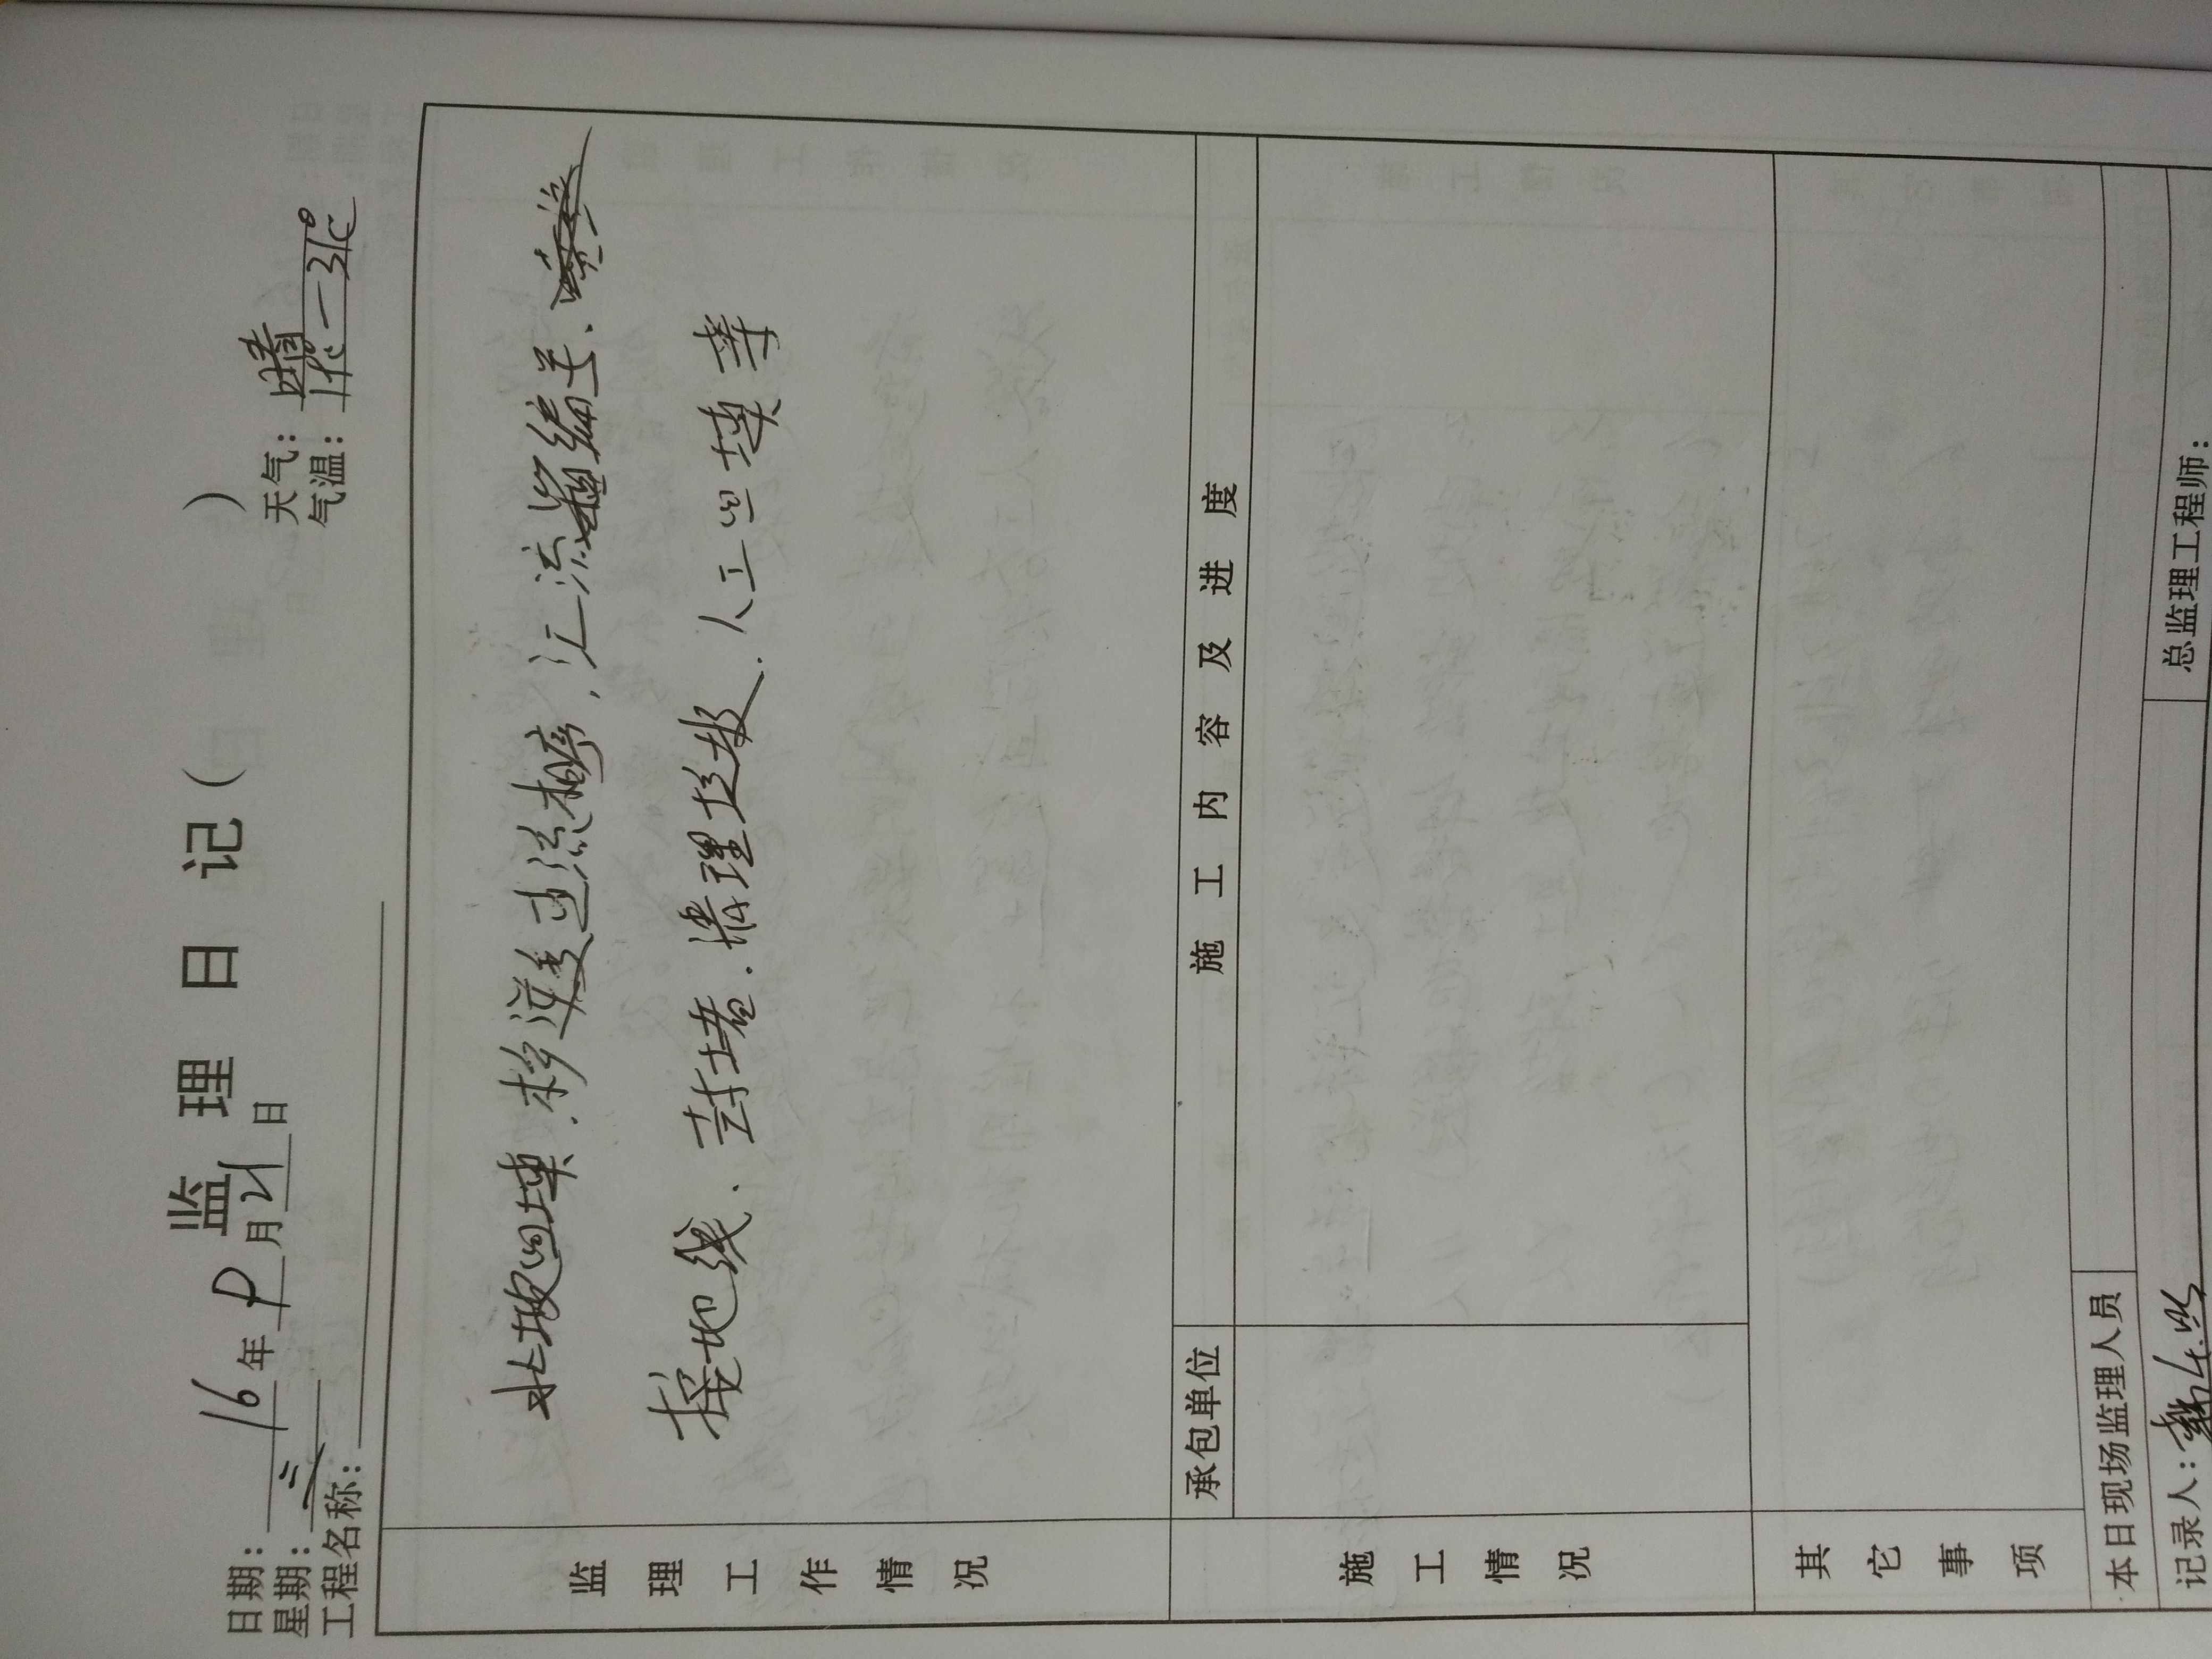 监理日记(  )
日期: 16年 月21日 天气: 晴
星期: 三 气温: 18℃—31℃
工程名称:
监理工作情况
北坡回填.移逆变直流相序,汇流箱编号、
接地线、封堵.清理垃圾.人工回填等
承包单位 施工内容及进度
施工情况
其它事项
本日现场监理人员
记录人: 总监理工程师: